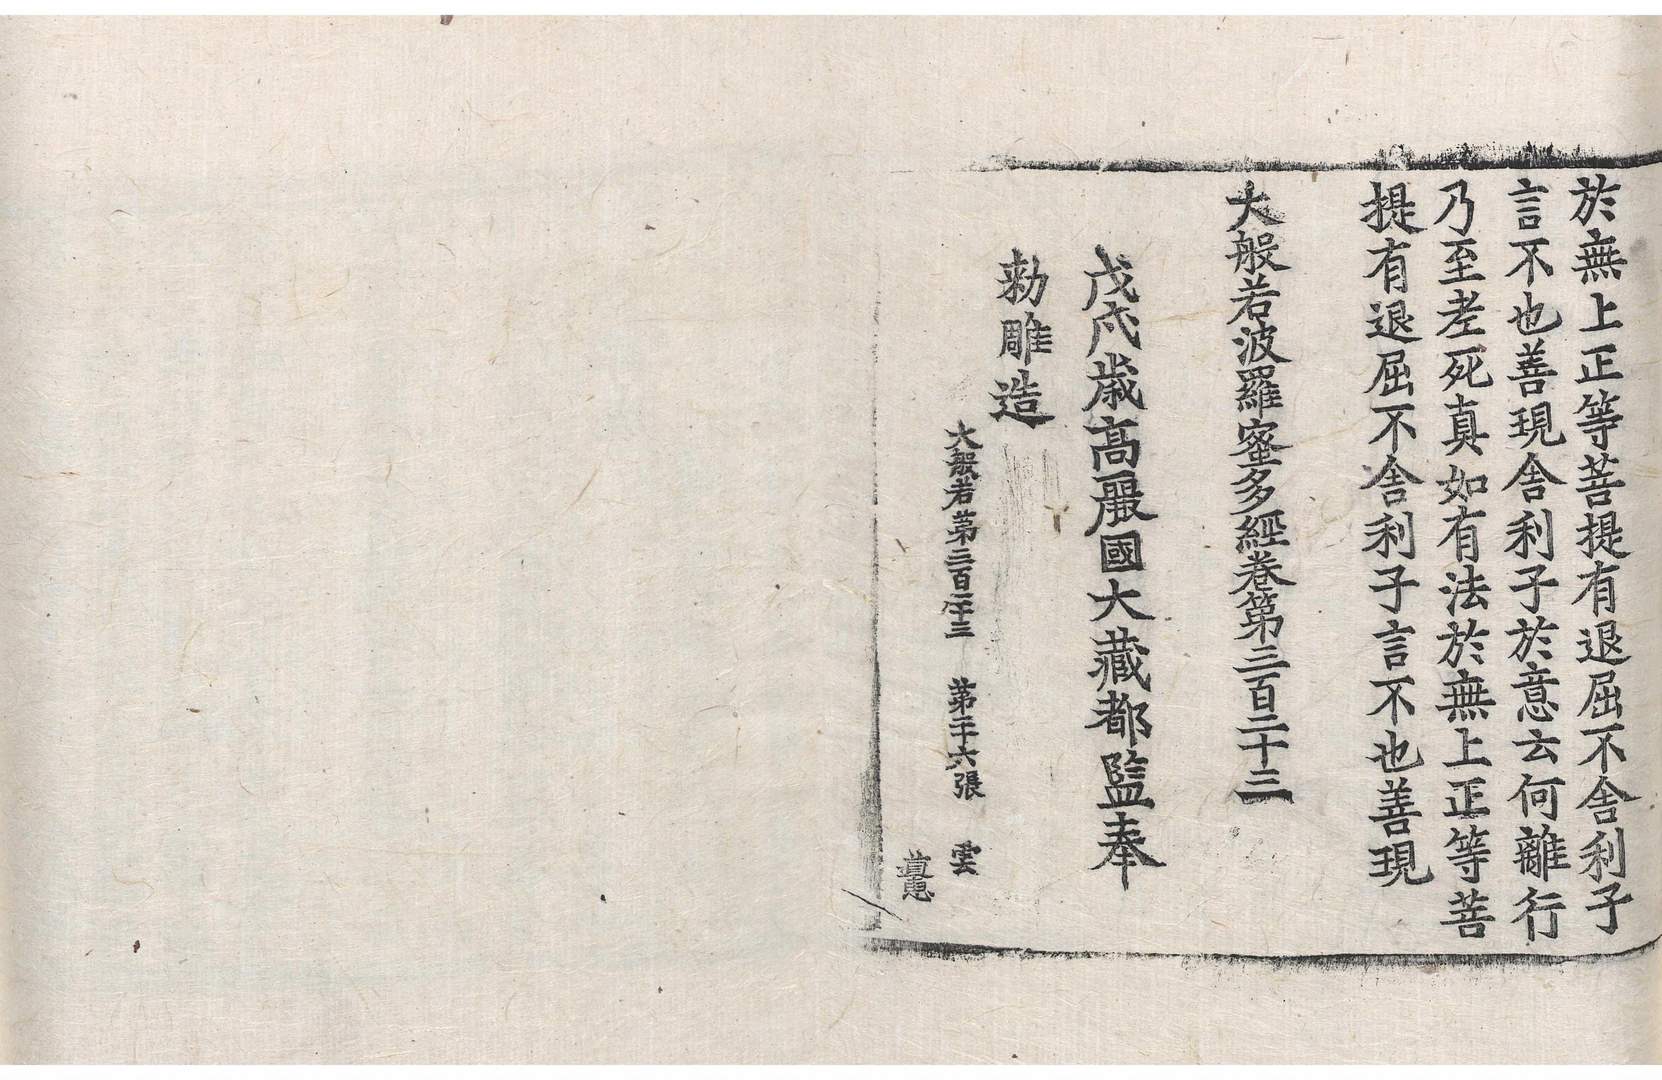 於無上正等菩提有退屈不舍利子
言不也善現舍利子於意云何離行
乃至老死真如有法於無上正等菩
提有退屈不舍利子言不也善現
大般若波羅蜜多經卷第三百二十三
戊戌歲高麗國大藏都監奉
勅雕造
大般若第三百二十三 第二十六張 雲